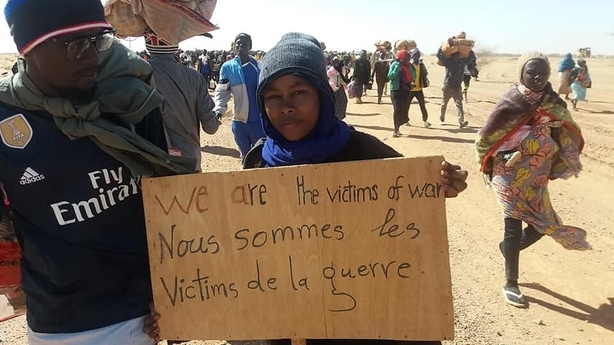 adidas
Fly
Emirates
We are the victims of war
Nous sommes les
Victims de la guerre